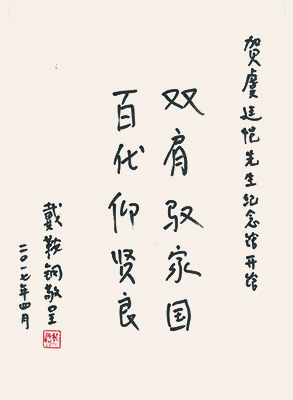 贺虞廷恺先生纪念馆开馆
双肩驭家国
百代仰贤良
戴鞍钢敬呈
二〇一七年四月